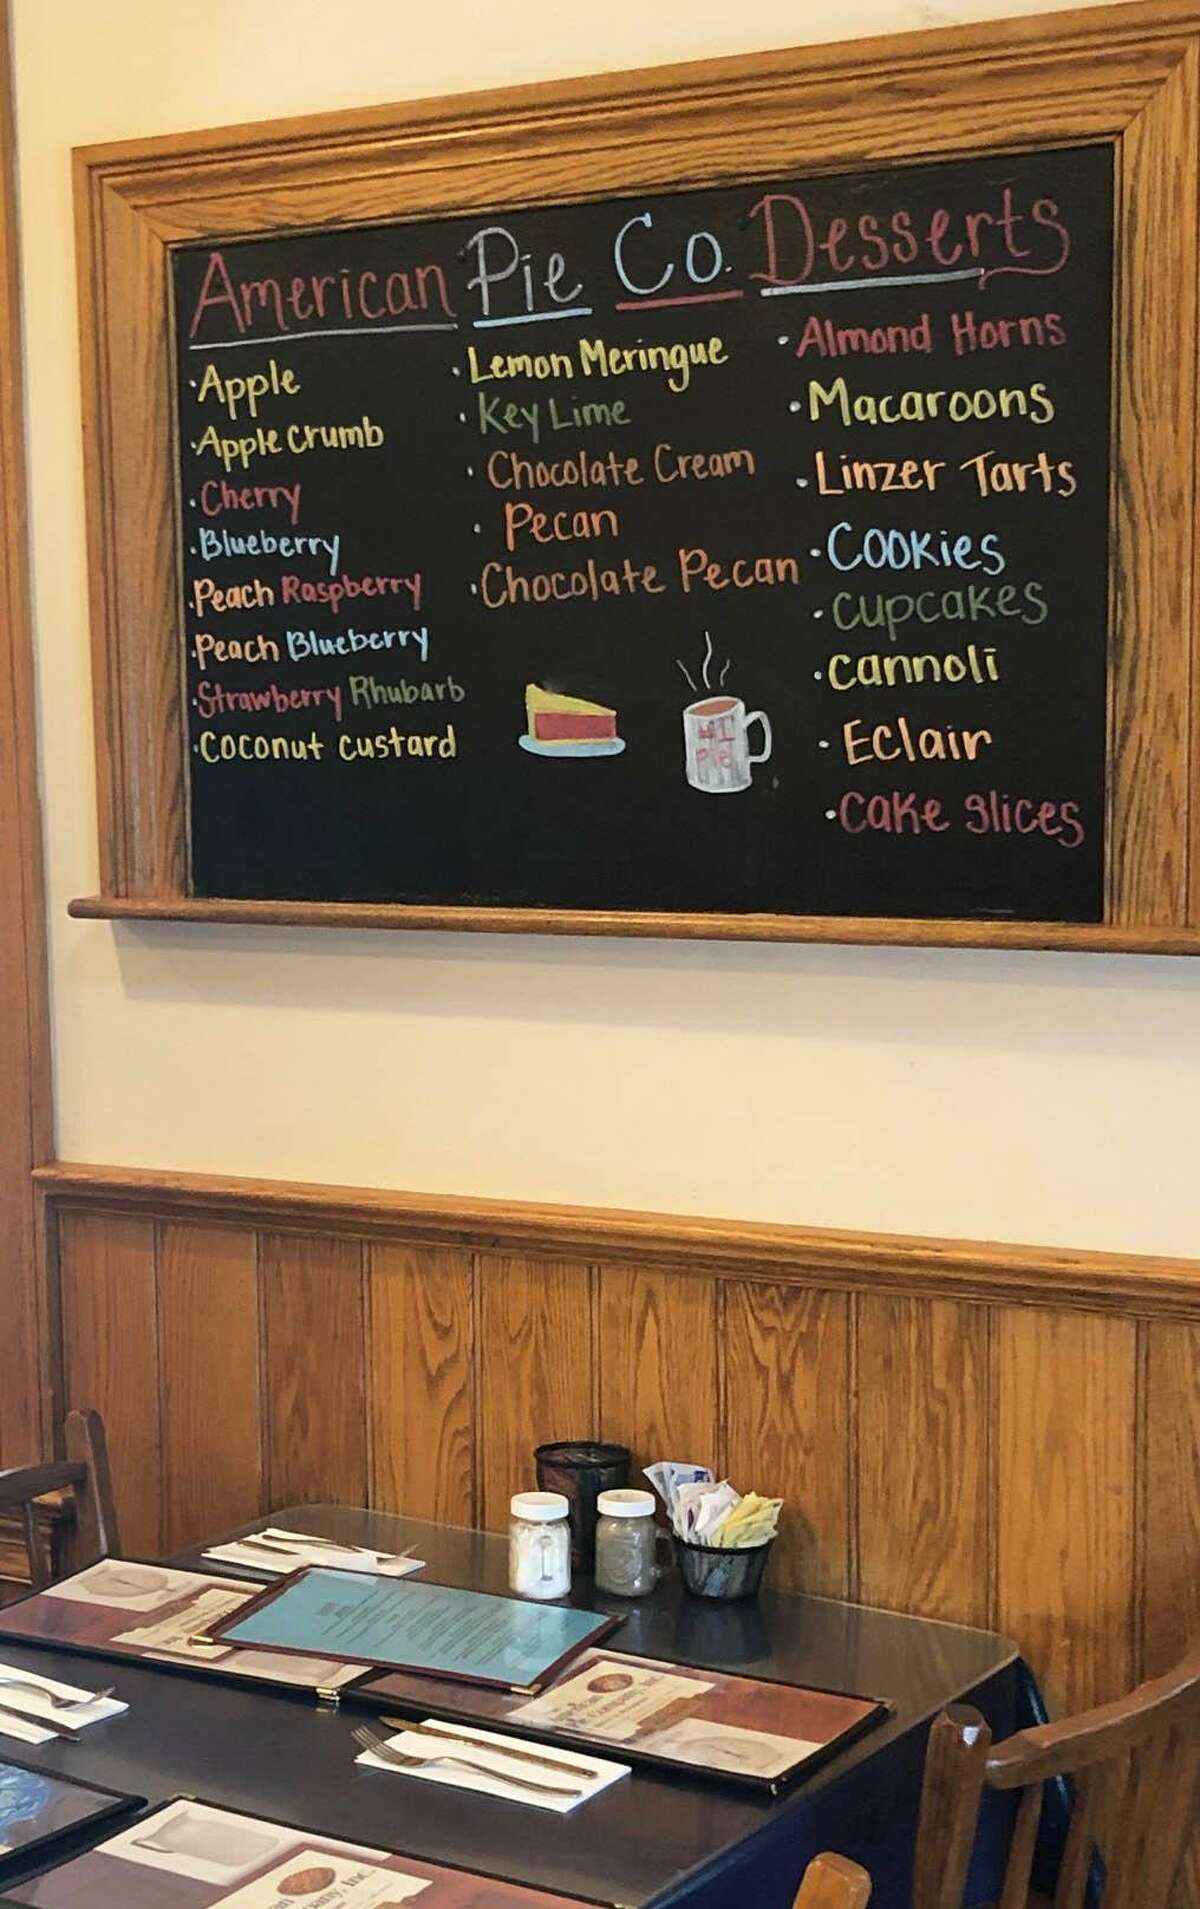 American Pie Co. Desserts
·Apple
·Apple Crumb
·Cherry
·Blueberry
·Peach Raspberry
·Peach Blueberry
·Strawberry Rhubarb
·Coconut custard
·Lemon Meringue
·Key Lime
·Chocolate Cream
·Pecan
·Chocolate Pecan
#1
Pie
·Almond Horns
·Macaroons
·Linzer Tarts
·Cookies
·Cupcakes
·Cannoli
·Eclair
·Cake slices